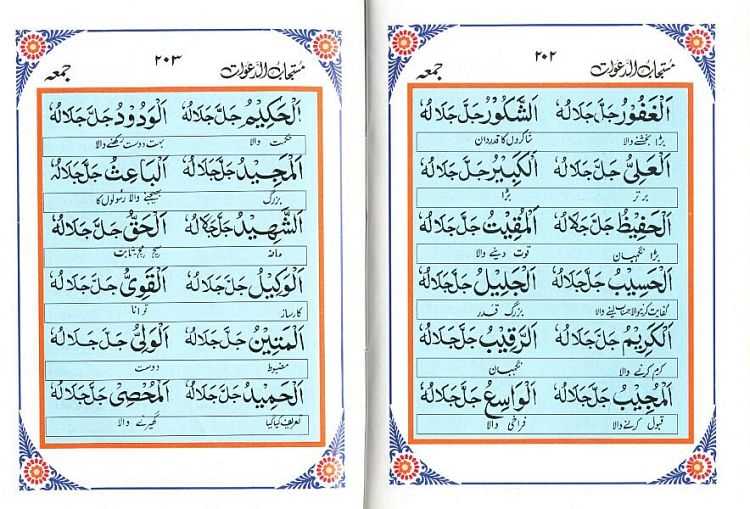 ۲۰۲
مستجاب الدعوات جمعہ
اَلْغَفُوْرُ جَلَّ جَلَالُهٗ اَلشَّكُوْرُ جَلَّ جَلَالُهٗ
بڑا بخشنے والا شاکروں کا قدردان
اَلْعَلِيُّ جَلَّ جَلَالُهٗ اَلْكَبِيْرُ جَلَّ جَلَالُهٗ
برتر بڑا
اَلْحَفِيْظُ جَلَّ جَلَالُهٗ اَلْمُقِيْتُ جَلَّ جَلَالُهٗ
بڑا نگہبان قوت دینے والا
اَلْحَسِيْبُ جَلَّ جَلَالُهٗ اَلْجَلِيْلُ جَلَّ جَلَالُهٗ
کفایت کرنیوالا حساب لینے والا بزرگ قدر
اَلْكَرِيْمُ جَلَّ جَلَالُهٗ اَلرَّقِيْبُ جَلَّ جَلَالُهٗ
کرم کرنے والا نگہبان
اَلْمُجِيْبُ جَلَّ جَلَالُهٗ اَلْوَاسِعُ جَلَّ جَلَالُهٗ
قبول کرنے والا فراخی والا
۲۰۳
مستجاب الدعوات جمعہ
اَلْحَكِيْمُ جَلَّ جَلَالُهٗ اَلْوَدُوْدُ جَلَّ جَلَالُهٗ
حکمت والا بہت دوست رکھنے والا
اَلْمَجِيْدُ جَلَّ جَلَالُهٗ اَلْبَاعِثُ جَلَّ جَلَالُهٗ
بزرگ بھیجنے والا رسولوں کا
اَلشَّهِيْدُ جَلَّ جَلَالُهٗ اَلْحَقُّ جَلَّ جَلَالُهٗ
سچ مچ ثابت
اَلْوَكِيْلُ جَلَّ جَلَالُهٗ اَلْقَوِيُّ جَلَّ جَلَالُهٗ
کارساز توانا
اَلْمَتِيْنُ جَلَّ جَلَالُهٗ اَلْوَلِيُّ جَلَّ جَلَالُهٗ
مضبوط دوست
اَلْحَمِيْدُ جَلَّ جَلَالُهٗ اَلْمُحْصِيْ جَلَّ جَلَالُهٗ
تعریف کیا گیا گھیرنے والا